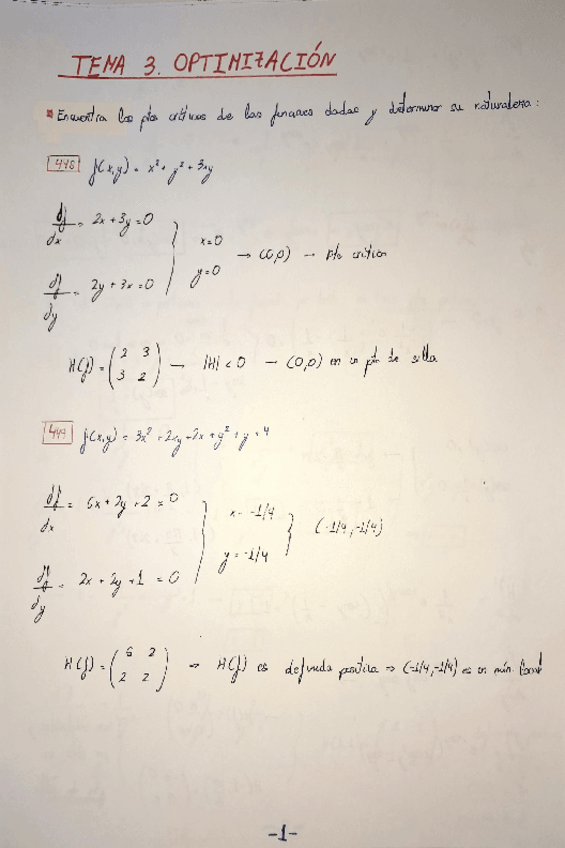 TEMA 3. OPTIMIZACIÓN
Encuentra los ptos críticos de las funciones dadas y determina su naturaleza:
448 f(x,y) = x² + y² + 3xy
df/dx = 2x + 3y = 0
x = 0
→ (0,0) → pto crítico
y = 0
df/dy = 2y + 3x = 0
H(f) = (2 3 / 3 2) → |H| < 0 → (0,0) es un pto de silla
449 f(x,y) = 3x² + 2xy + 2x + y² + y + 4
df/dx = 6x + 2y + 2 = 0
x = -1/4
(-1/4, -1/4)
y = -1/4
df/dy = 2x + 2y + 1 = 0
H(f) = (6 2 / 2 2) → H(f) es definida positiva → (-1/4, -1/4) es un mín. local
-1-